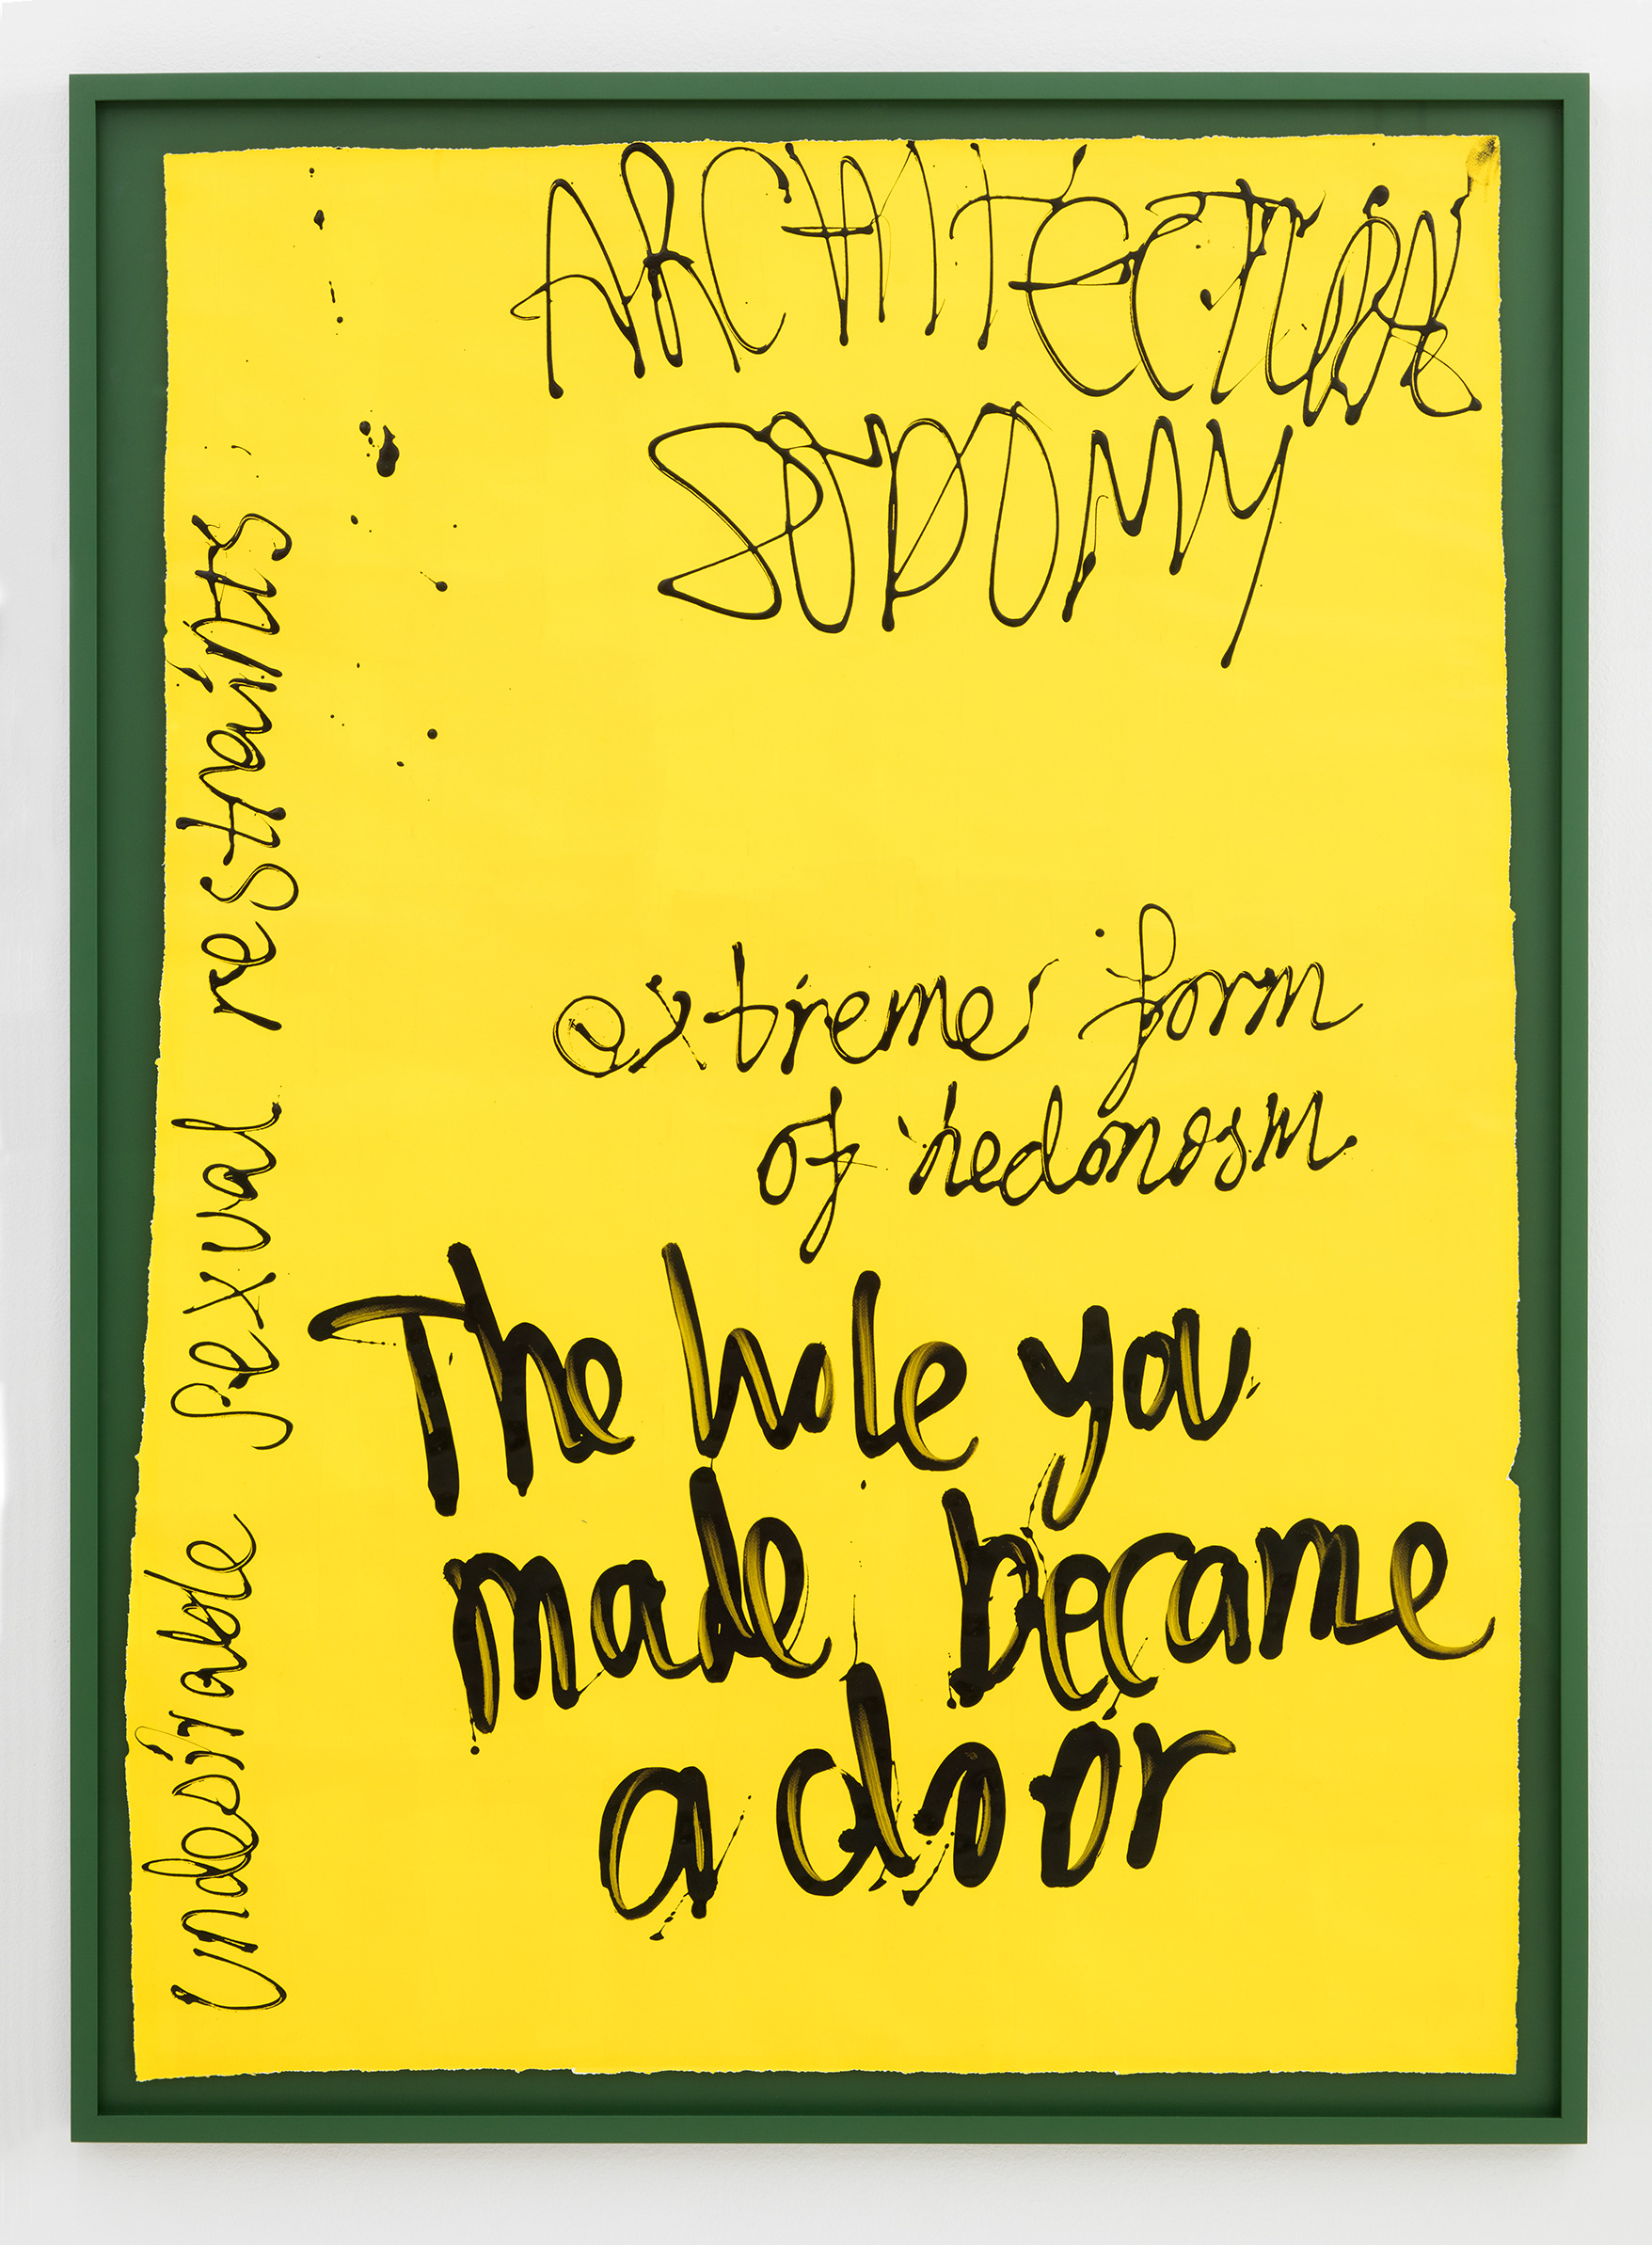 ARCHITECTURAL
SODOMY
extreme form
of hedonosm
The hole you
made became
a door
Undesirable sexual restraints